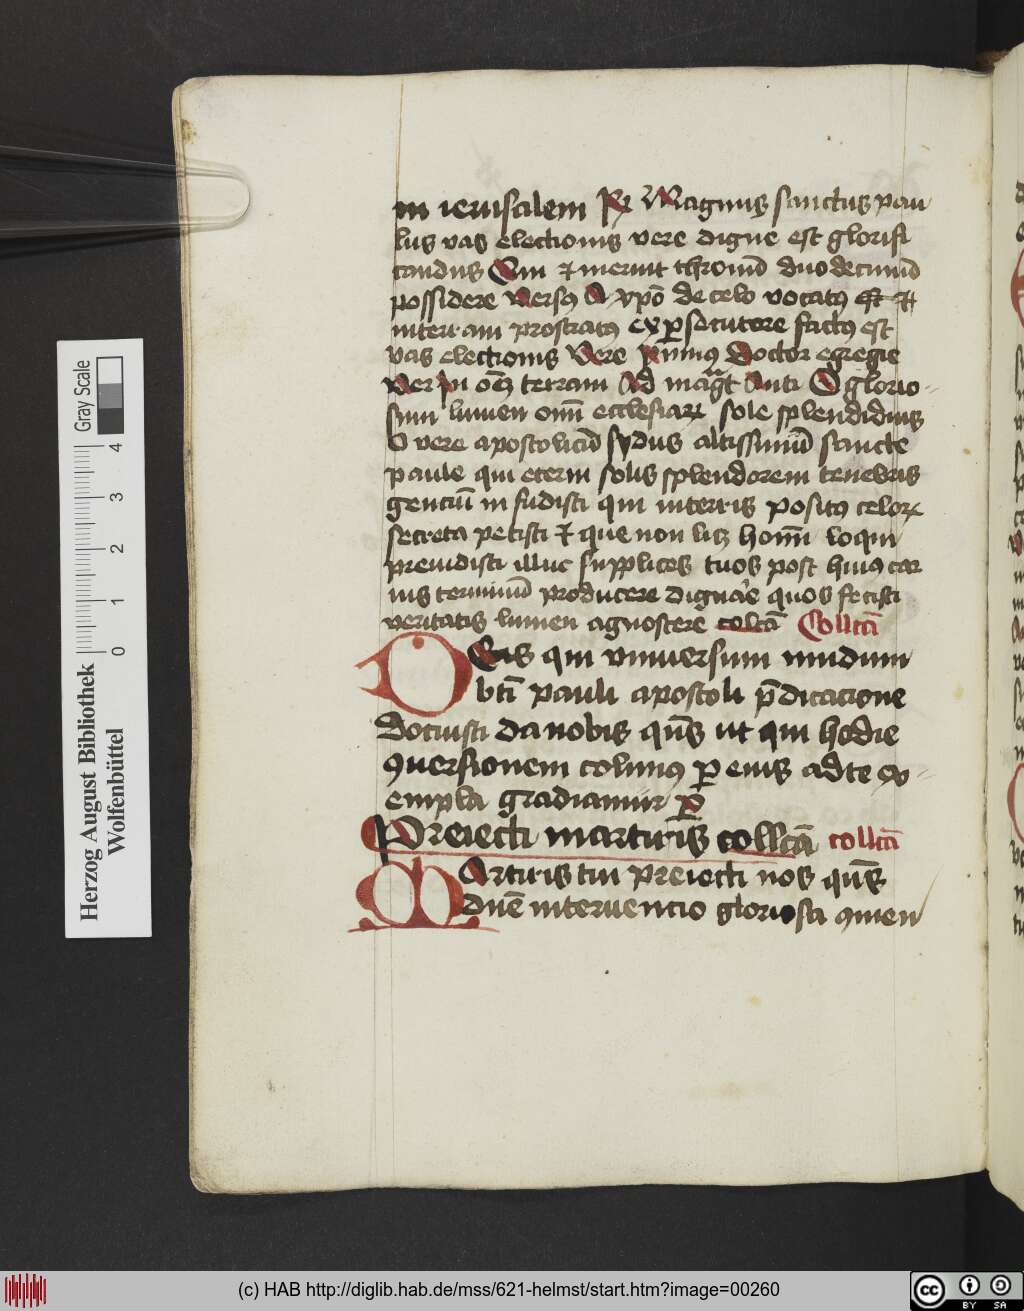 in ierusalem R Magnus sanctus pau
lus vas electionis vere digne est glorifi
candus Qui ⁊ meruit thronū duodecimū
possidere versꝰ A xpō de celo vocatꝰ est ⁊
interram prostratꝰ ex ꝑsecutore factꝰ est
vas electionis Vere Primꝰ Doctor egregie
ver In oēȝ terram Ad magt Anti O glorio
sum lumen omī ecclesiaꝝ sole splendidius
O vere apostolicū sydus altissimū sancte
paule qui eterni solis splendorem tenebris
genciū in fudisti qui interris positꝰ celoꝝ
secreta petisti ⁊ que non licȝ homī loqui
preuidisti illuc supplices tuos post huiꝰ car
nis terminū producere digna'e quos fecisti
veritatis lumen agnoscere colctā Collctā
DEus qui vniuersum mūdum
bti pauli apostoli p̄dicacione
docuisti da nobis qūs ut qui hodie
ꝯuersionem colimꝰ ꝑ eius ad te ex
empla gradiamur ꝑ
Preiecti martiris collctā collctā
MArtiris tui preiecti nos qūs
dne interuencio gloriosa ꝯmen
Herzog August Bibliothek
Wolfenbüttel
0 1 2 3 4
Gray Scale
(c) HAB http://diglib.hab.de/mss/621-helmst/start.htm?image=00260
cc BY SA